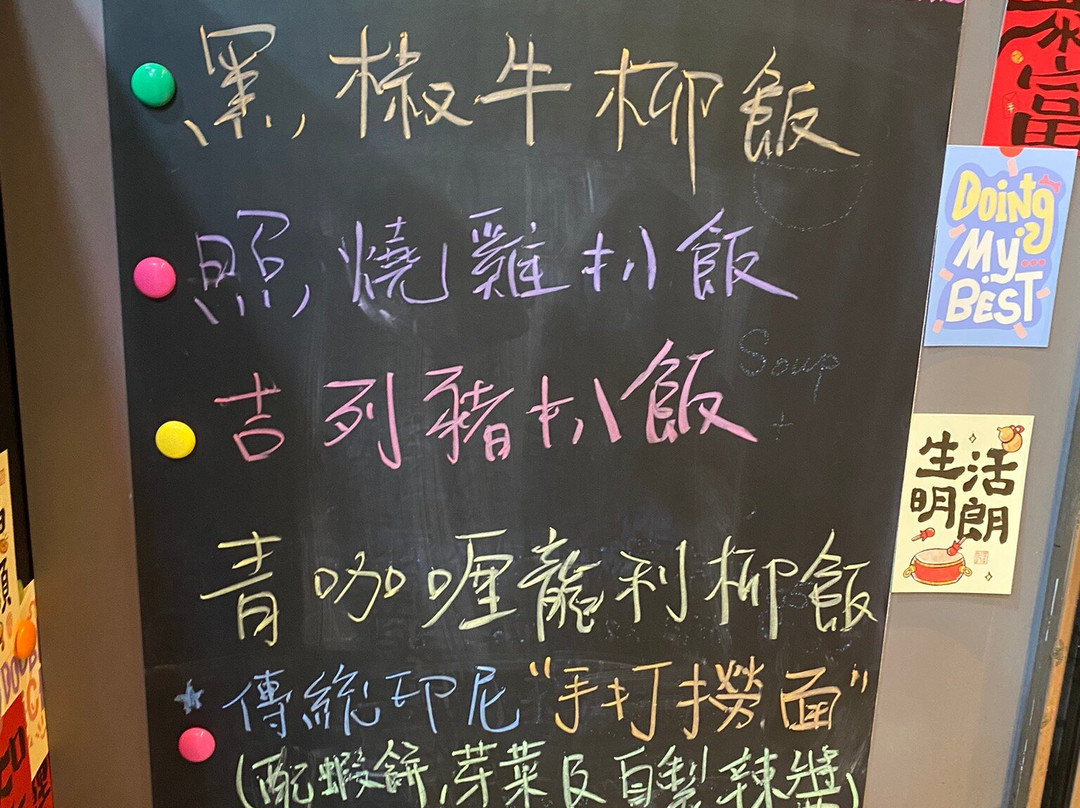 黑椒牛柳飯
照燒雞扒飯
Soup
+
吉列豬扒飯
青咖喱龍利柳飯
傳統印尼“手打撈面”
(配蝦餅,芽菜及自製辣醬)
DOiNg
My
BEST
生活
明朗